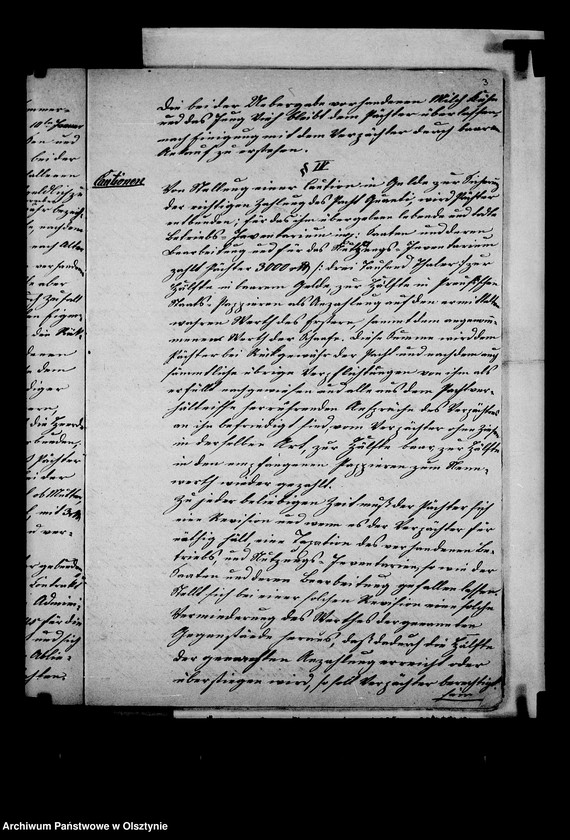 3
die bei der Uebergabe vorhandenen Milch Kühe
und das Jung Vieh bleibt dem Pächter überlassen,
nach Einigung mit dem Verpächter durch baaren
Ankauf zu erstehen.
§ IV
Cautionen
Von Stellung einer Caution in Gelde, zur Sicherung
der richtigen Zahlung des Pacht Quanti, wird Pächter
entbunden; für das ihm übergebene lebende und todte
Betriebs-Inventarium incl: Saaten und deren
Bearbeitung und für das Nutzungs-Inventarium
zahlt Pächter 3000 rtl /: drei Tausend Thaler :/ zur
Hälfte in baarem Gelde, zur Hälfte in Preußischen
Staats-Pappieren als Anzahlung auf den ermittelten
wahren Werth des Ersteren, sammt dem angenom-
menen Werth der Schaafe. Diese Summe wird dem
Pächter bei Rückgewähr der Pacht und nachdem auch
sämmtliche übrige Verpflichtungen von ihm als
erfüllt nachgewiesen und alle aus dem Pachtver-
hältnisse herrührenden Ansprüche des Verpächters
an ihn befriedigt sind, vom Verpächter ohne Zinsen
in derselben Art, zur Hälfte baar, zur Hälfte
in den empfangenen Pappieren zum Nenn-
werth wieder gezahlt.
Zu jeder beliebigen Zeit muß der Pächter sich
eine Revision und wenn es der Verpächter für
nöthig hält, eine Taxation des vorhandenen Be-
triebs, und Nutzungs-Inventarium, so wie der
Saaten und deren Bearbeitung gefallen lassen.
Stellt sich bei einer solchen Revision eine solche
Verminderung des Werthes der genannten
Gegenstände heraus, daß dadurch die Hälfte
der gemachten Anzahlung erreicht oder
überstiegen wird, so soll Verpächter berechtigt
sein,
Archiwum Państwowe w Olsztynie